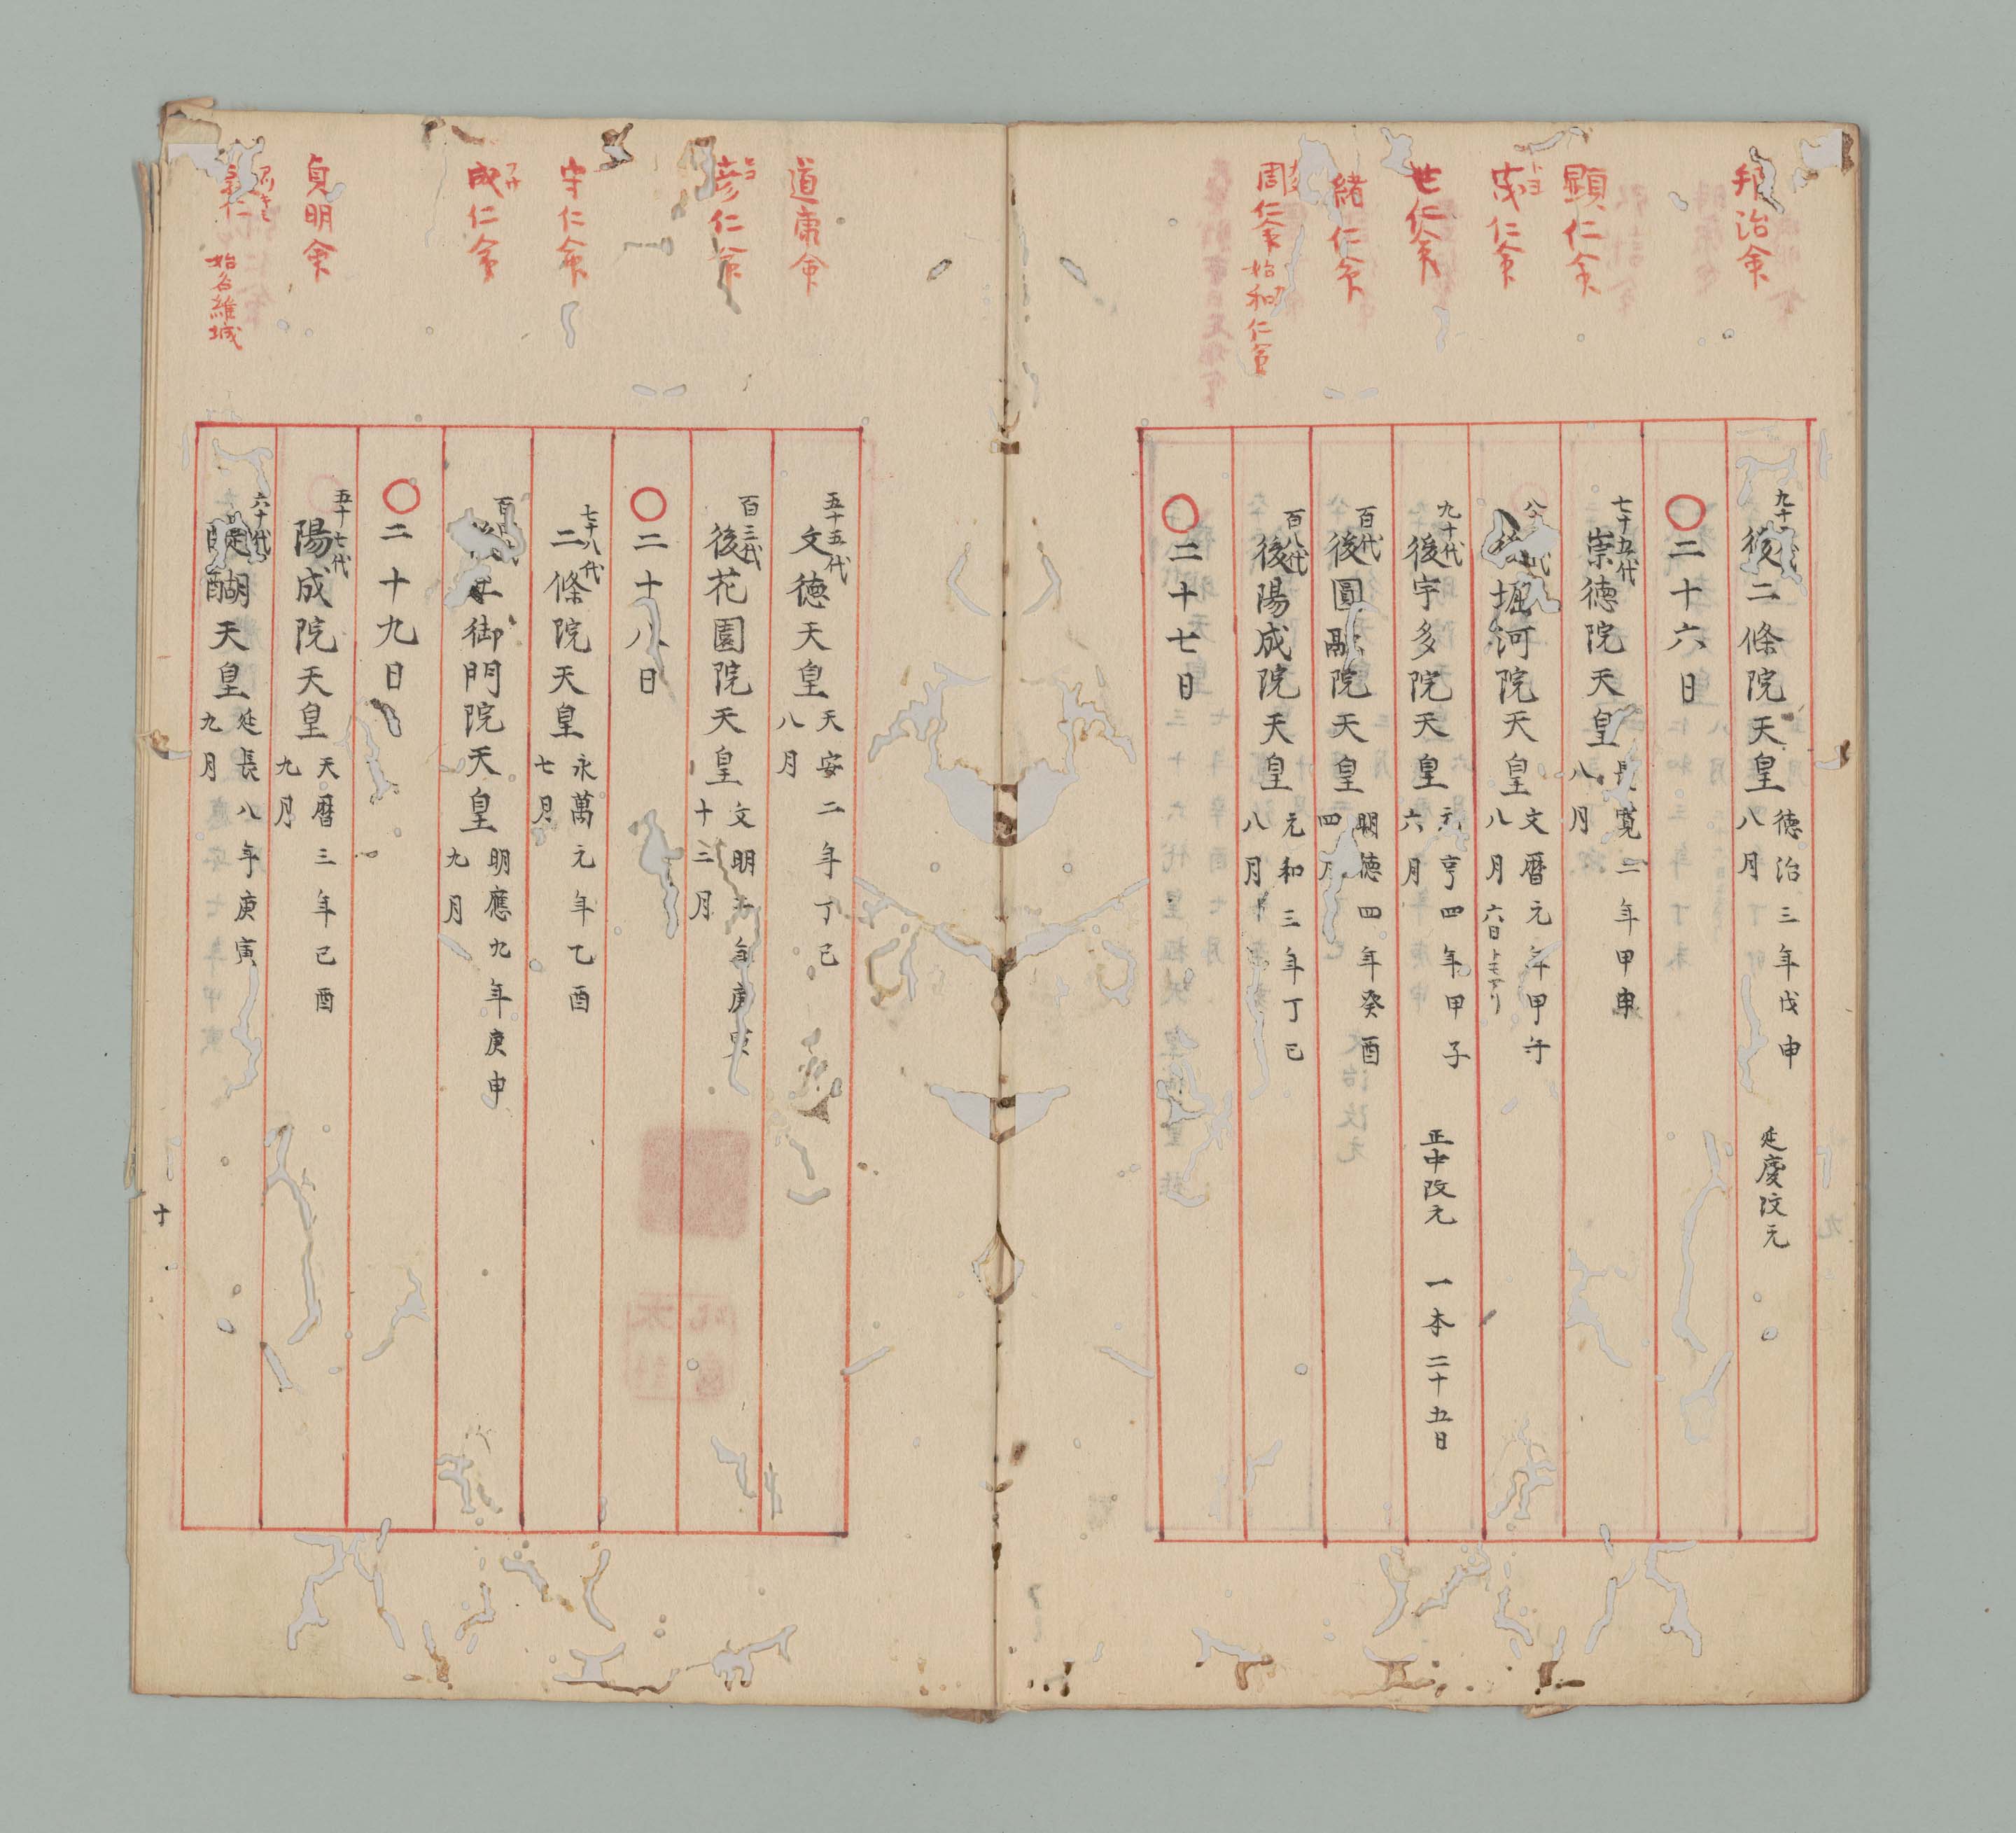 邦治傘
九十代
後二條院天皇 徳治三年戊申 延慶改元
八月
〇二十六日
顕仁傘
七十五代
崇徳院天皇 長寛二年甲申
八月
トヨ
茂仁傘
堀河院天皇 文暦元年甲午
八月 六日トモアリ
世仁傘
九十代
後宇多院天皇 元亨四年甲子 正中改元 一本二十五日
六月
緒仁傘
百代
後圓融院天皇 明徳四年癸酉
四月
周仁傘 始和仁傘
百八代
後陽成院天皇 元和三年丁巳
八月
〇二十七日
道康傘
五十五代
文徳天皇 天安二年丁巳
八月
ヒコ
彦仁傘
百三代
後花園院天皇 文明二年庚寅
十二月
〇二十八日
守仁傘
七十八代
二條院天皇 永萬元年乙酉
七月
フサ
成仁傘
御門院天皇 明應九年庚申
九月
〇二十九日
貞明傘
五十七代
陽成院天皇 天暦三年己酉
九月
アツキミ
仁 始名維城
六十代
醍醐天皇 延長八年庚寅
九月
十